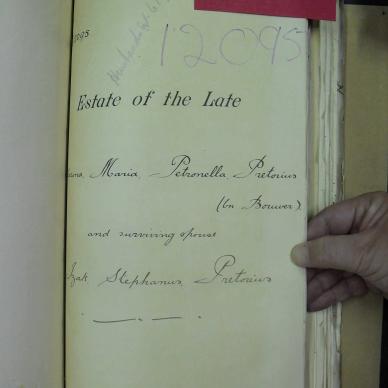 12095
Estate of the Late
Maria Petronella Pretorius
(bn Bouwer)
and surviving spouse
Izak Stephanus Pretorius